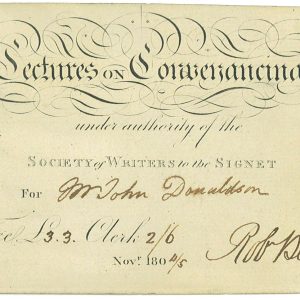 Lectures on Conveyancing
under authority of the
SOCIETY of WRITERS to the SIGNET
For Mr John Donaldson
Fee £3.3. Clerk 2/6
Rob
Novr. 1804/5